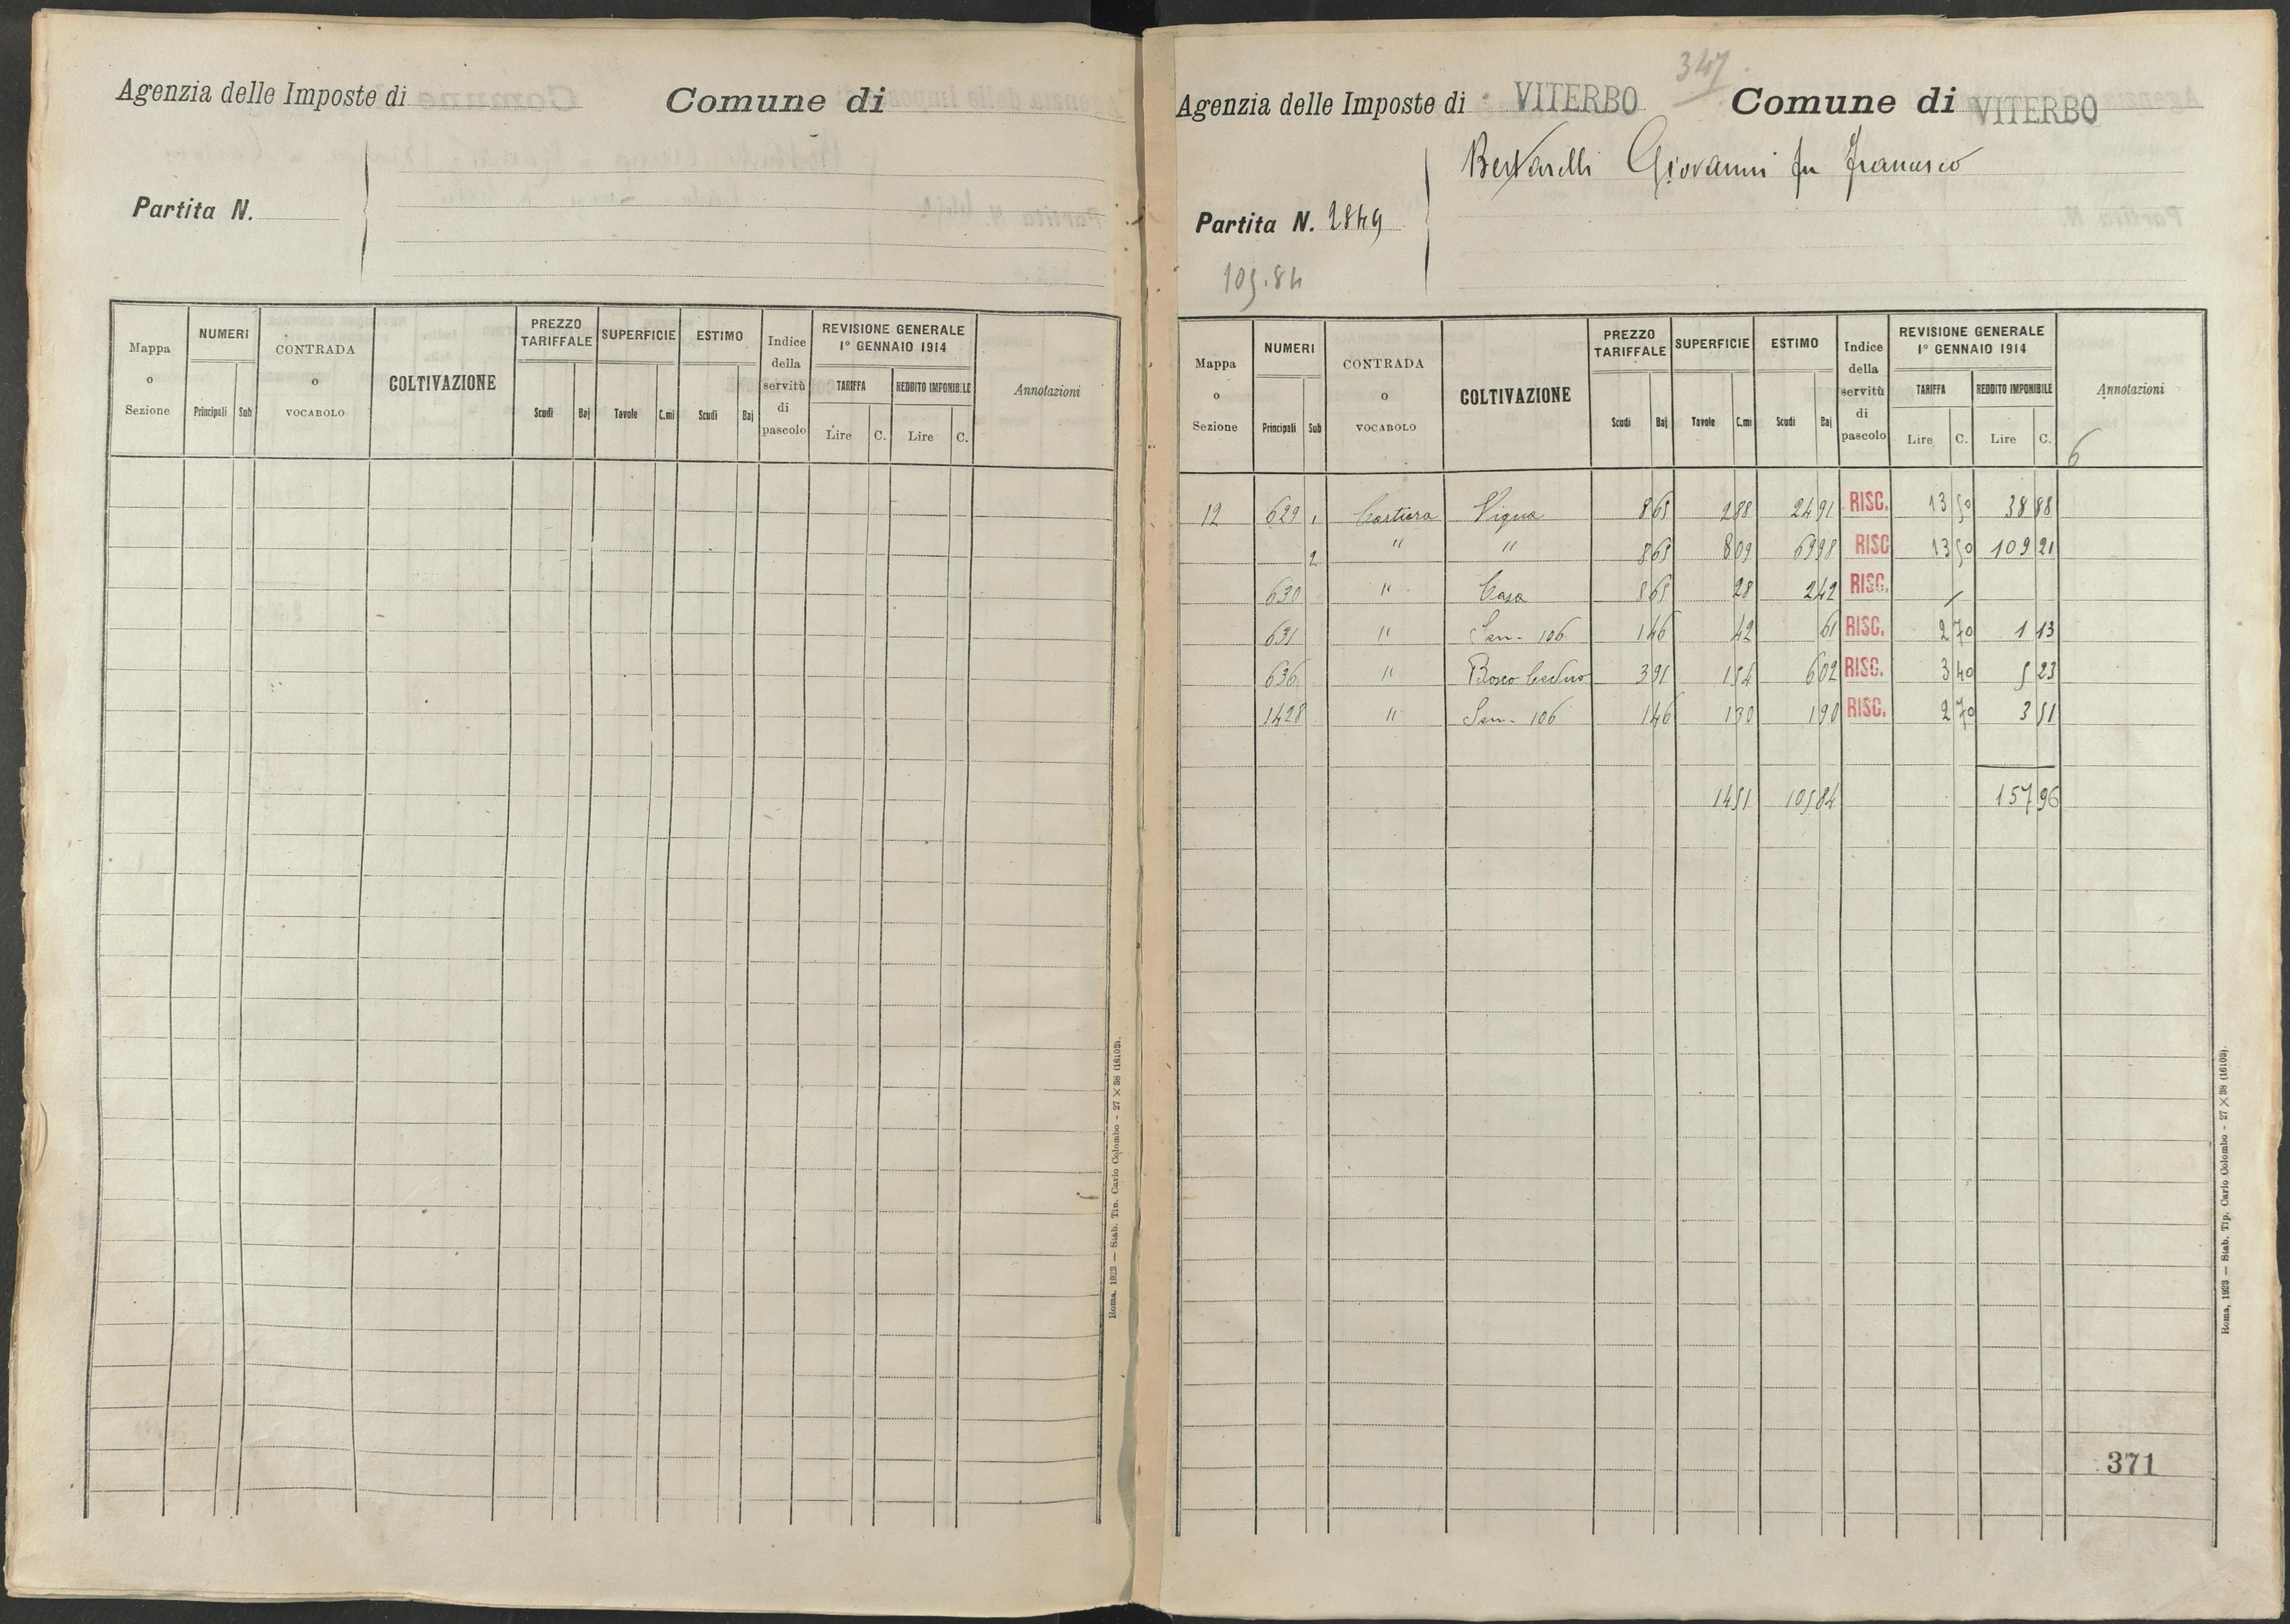 Agenzia delle Imposte di Comune di
Partita N.
Mappa o Sezione NUMERI Principali Sub CONTRADA o VOCABOLO COLTIVAZIONE PREZZO TARIFFALE Scudi Baj SUPERFICIE Tavole C.mi ESTIMO Scudi Baj Indice della servitù di pascolo REVISIONE GENERALE 1° GENNAIO 1914 TARIFFA Lire C. REDDITO IMPONIBILE Lire C. Annotazioni
Roma, 1923 — Stab. Tip. Carlo Colombo - 27 × 38 (16103).
347
Agenzia delle Imposte di VITERBO Comune di VITERBO
Giovanni fu Francesco
Partita N. 2849
105.84
Mappa o Sezione NUMERI Principali Sub CONTRADA o VOCABOLO COLTIVAZIONE PREZZO TARIFFALE Scudi Baj SUPERFICIE Tavole C.mi ESTIMO Scudi Baj Indice della servitù di pascolo REVISIONE GENERALE 1° GENNAIO 1914 TARIFFA Lire C. REDDITO IMPONIBILE Lire C. Annotazioni
6
12 629 1 Cartiera Vigna 8 65 2 88 24 91 RISC. 13 50 38 88
2 " " 8 65 8 09 69 98 RISC 13 50 109 21
630 " Casa 8 65 28 2 42 RISC. /
631 " Sem. 106 1 46 42 61 RISC. 2 70 1 13
636 " Bosco Ceduo 3 91 1 54 6 02 RISC. 3 40 5 23
1428 " Sem. 106 1 46 1 30 1 90 RISC. 2 70 3 51
14 51 105 84 157 96
371
Roma, 1923 — Stab. Tip. Carlo Colombo - 27 × 38 (16103).